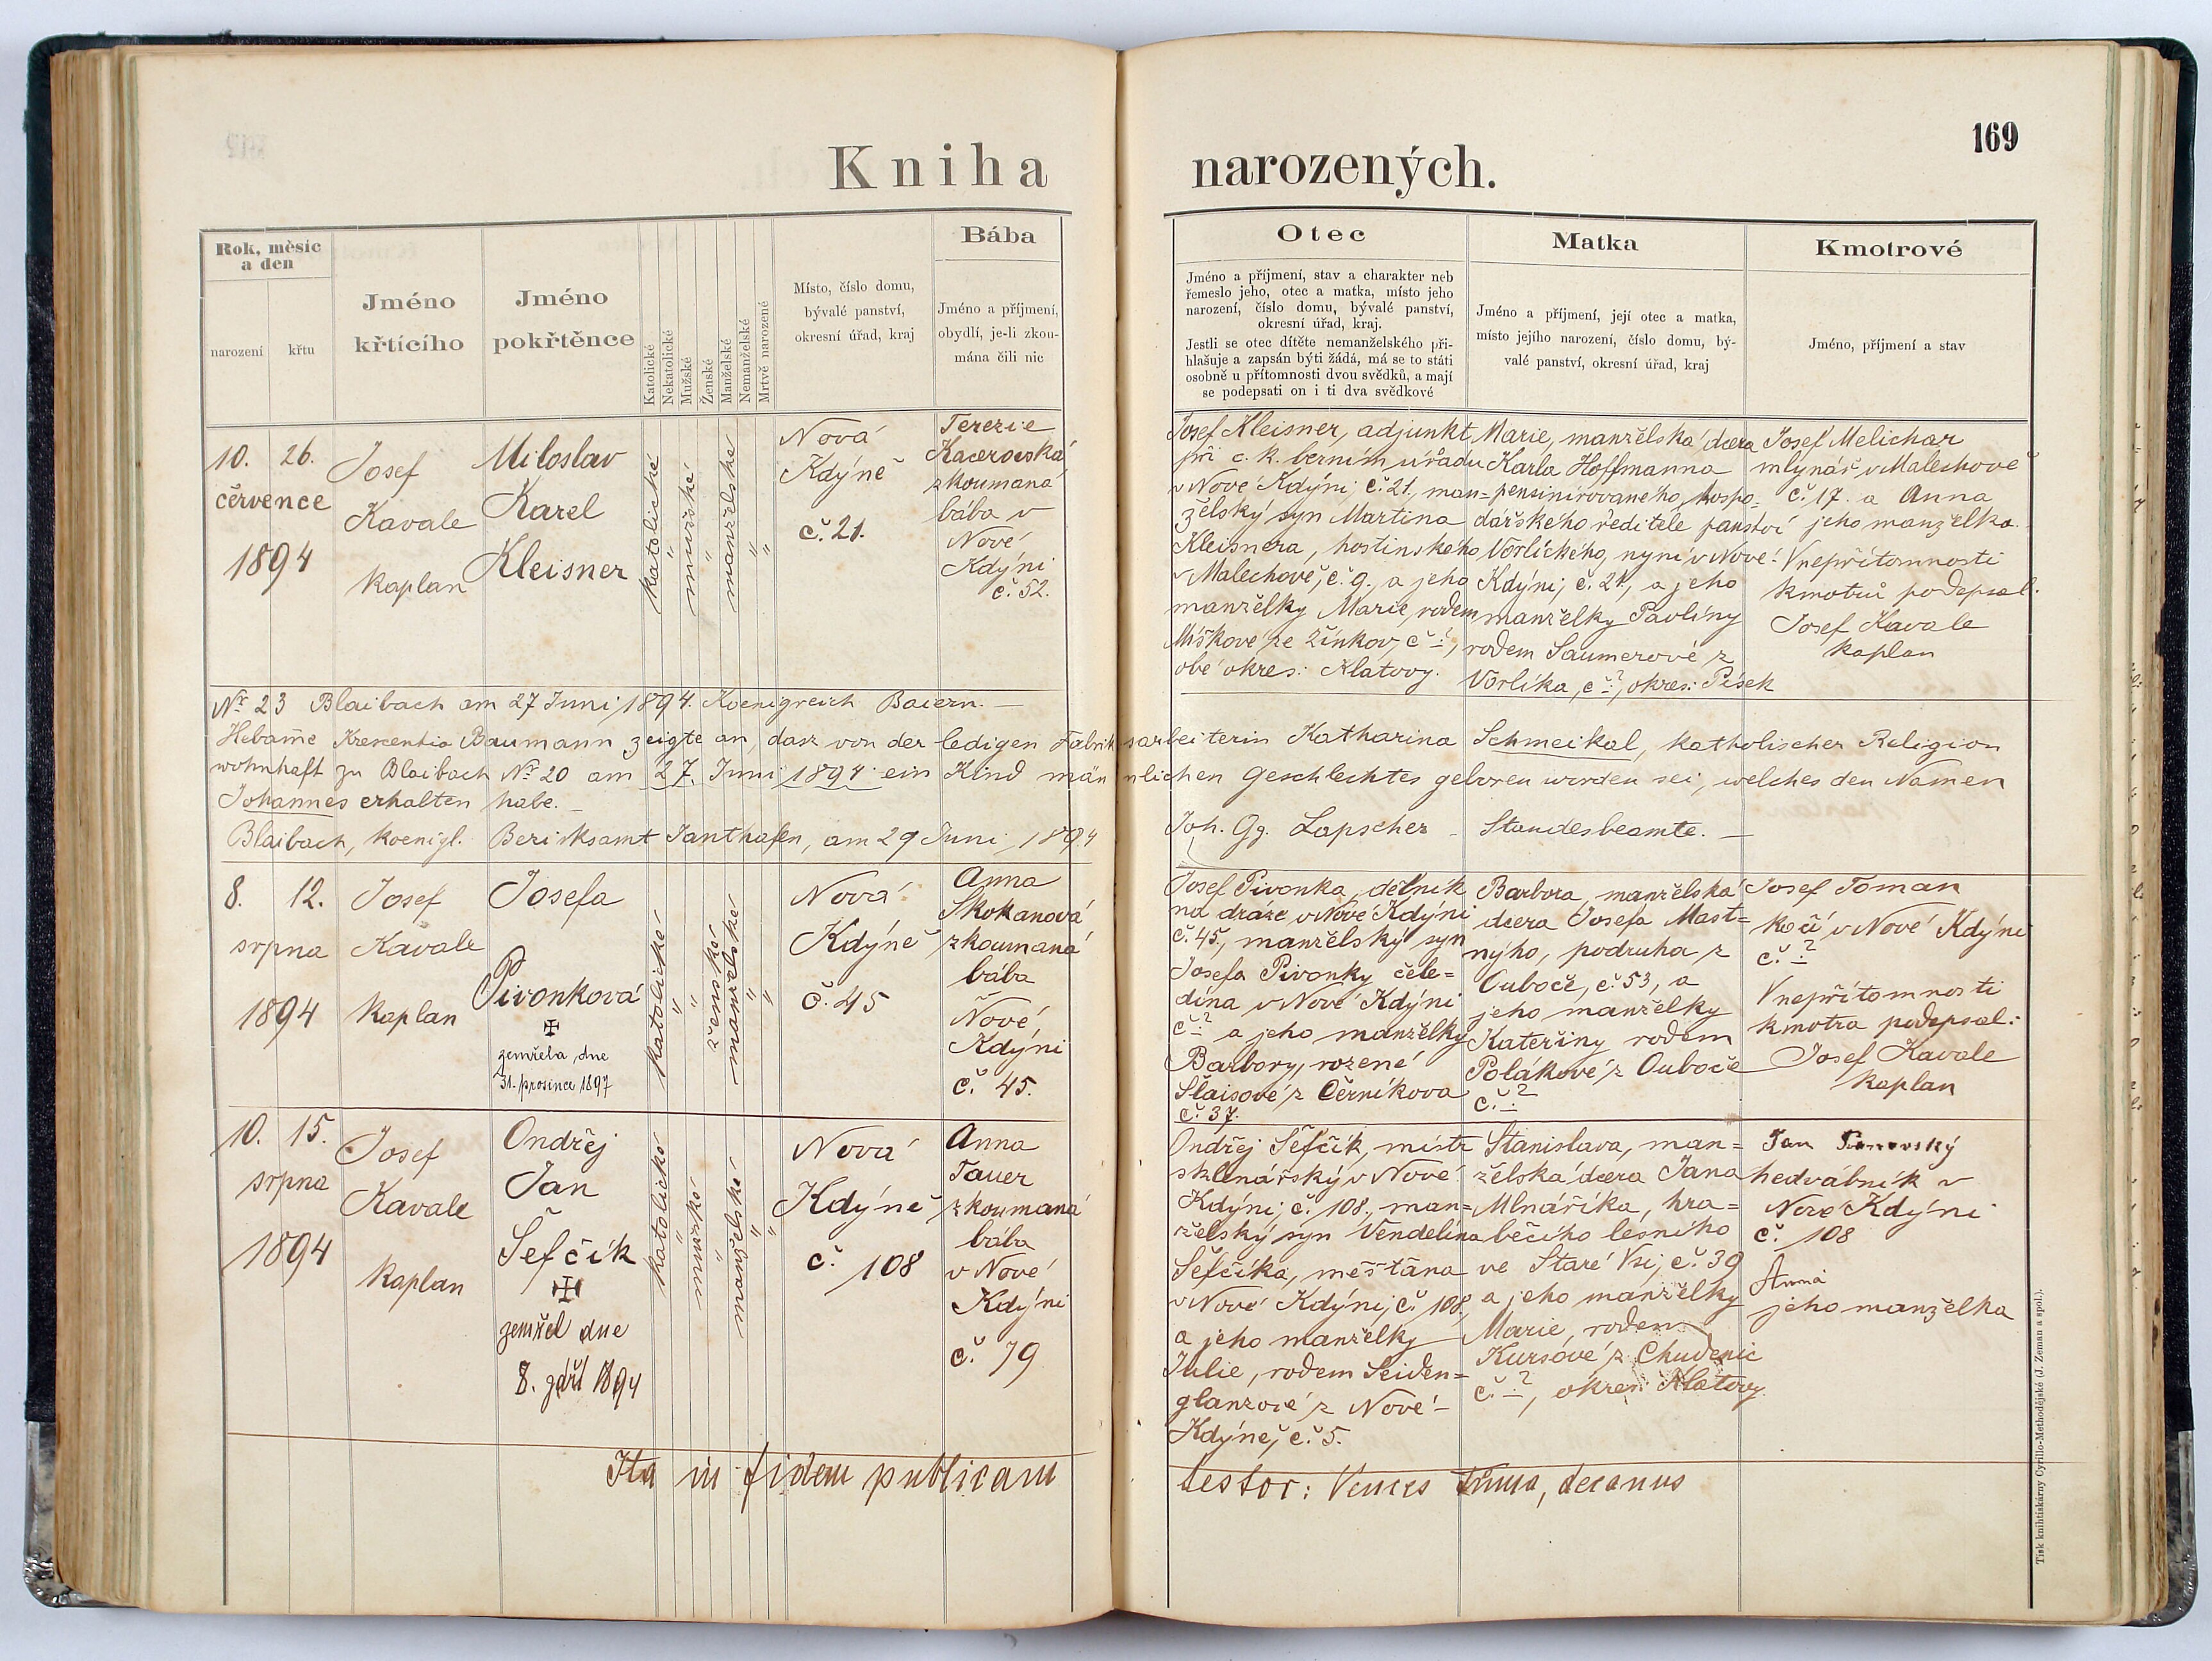 Kniha narozených.
169
Rok, měsíc
a den
narození
křtu
Jméno
křtícího
Jméno
pokřtěnce
Katolické
Nekatolické
Mužské
Ženské
Manželské
Nemanželské
Mrtvě narozené
Místo, číslo domu,
bývalé panství,
okresní úřad, kraj
Bába
Jméno a příjmení,
obydlí, je-li zkou-
mána čili nic
Otec
Jméno a příjmení, stav a charakter neb
řemeslo jeho, otec a matka, místo jeho
narození, číslo domu, bývalé panství,
okresní úřad, kraj.
Jestli se otec dítěte nemanželského při-
hlašuje a zapsán býti žádá, má se to státi
osobně u přítomnosti dvou svědků, a mají
se podepsati on i ti dva svědkové
Matka
Jméno a příjmení, její otec a matka,
místo jejího narození, číslo domu, bý-
valé panství, okresní úřad, kraj
Kmotrové
Jméno, příjmení a stav
10. 26.
července
1894
Josef
Kavale
kaplan
Miloslav
Karel
Kleisner
katolické
"
mužské
"
manželské
"
"
Nová
Kdýně
č. 21.
Terezie
Kacerovská
zkoumaná
bába v
Nové
Kdýni
č. 52.
Josef Kleisner, adjunkt
při c. k. berním úřadu
v Nové Kdýni, č. 21., man=
želský syn Martina
Kleisnera, hostinského
v Malechově, č. 9., a jeho
manželky Marie, rodem
Míškové ze Žinkov, č. ?,
obé okres: Klatovy.
Marie, manželská dcera
Karla Hoffmanna
pensinírovaného, hospo=
dářského ředitele panství
Vorlíckého, nyní v Nové
Kdýni, č. 21., a jeho
manželky Pavlíny
rodem Saumerové z
Vorlíka, č. ?, okres: Písek
Josef Melichar
mlynář v Malechově
č. 17. a Anna
jeho manželka.
V nepřítomnosti
kmotrů podepsal:
Josef Kavale
kaplan
Nr 23 Blaibach am 27 Juni 1894. Koenigreich Baiern. —
Hebame Krescentia Baumann zeigte an, dasz von der ledigen Fabriksarbeiterin Katharina Schmeikal, katholischer Religion
wohnhaft zu Blaibach Nr 20 am 27. Juni 1894 ein Kind männlichen Geschlechtes geboren worden sei, welches den Namen
Johannes erhalten habe. —
Blaibach, koenigl. Bezirksamt am 29 Juni 1894 Joh. Gg. Lapscher - Standesbeamte. —
8. 12.
srpna
1894
Josef
Kavale
kaplan
Josefa
Pivonková
✠
zemřela dne
31. prosince 1897
katolické
"
"
ženské
manželské
"
"
Nová
Kdýně
č. 45
Anna
Skokanová
zkoumaná
bába
Nové
Kdýni
č. 45.
Josef Pivonka, dělník
na dráze v Nové Kdýni
č. 45, manželský syn
Josefa Pivonky čele=
dína v Nové Kdýni
č. ? a jeho manželky
Barbory, rozené
Šlaisové z Černíkova
č. 37.
Barbora, manželská
dcera Josefa Mast=
nýho, podruha z
Ouboče, č. 53, a
jeho manželky
Kateřiny rodem
Polákové z Ouboče
č. ?
Josef Toman
kočí v Nové Kdýni
č. ?
V nepřítomnosti
kmotra podepsal:
Josef Kavale
kaplan
10. 15.
srpna
1894
Josef
Kavale
kaplan
Ondřej
Jan
Šefčík
✠
zemřel dne
8. září 1894
katolické
"
mužské
"
manželské
"
"
Nová
Kdýně
č. 108
Anna
Tauer
zkoumaná
bába
v Nové
Kdýni
č. 79
Ondřej Šefčík, mistr
sklenářský v Nové
Kdýni, č. 108., man=
želský syn Vendelína
Šefčíka, měšťana
v Nové Kdýni, č. 108,
a jeho manželky
Julie, rodem Seiden=
glanzové z Nové
Kdýně, č. 5.
Stanislava, man=
želská dcera Jana
Mlnáříka, hra=
běcího lesního
ve Staré Vsi, č. 39
a jeho manželky
Marie, rodem
Kursové z Chudenic
č. ?, okres Klatovy
Jan
hedvábník v
Nové Kdýni
č. 108
Anna
jeho manželka
Ita in fidem publicam testor: decanus
Tisk knihtiskárny Cyrillo-Methodějské (J. Zeman a spol.).